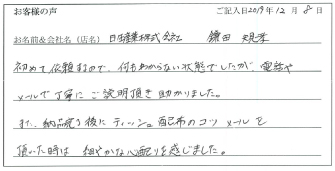 お客様の声 ご記入日2019年12月8日
お名前&会社名(店名) 日出産業株式会社 鎌田
初めて依頼するので、何もわからない状態でしたが、電話や
メールで丁寧にご説明頂き助かりました。
また、納品完了後にティッシュ配布のコツ メールを
頂いた時は 細やかな心配りを感じました。